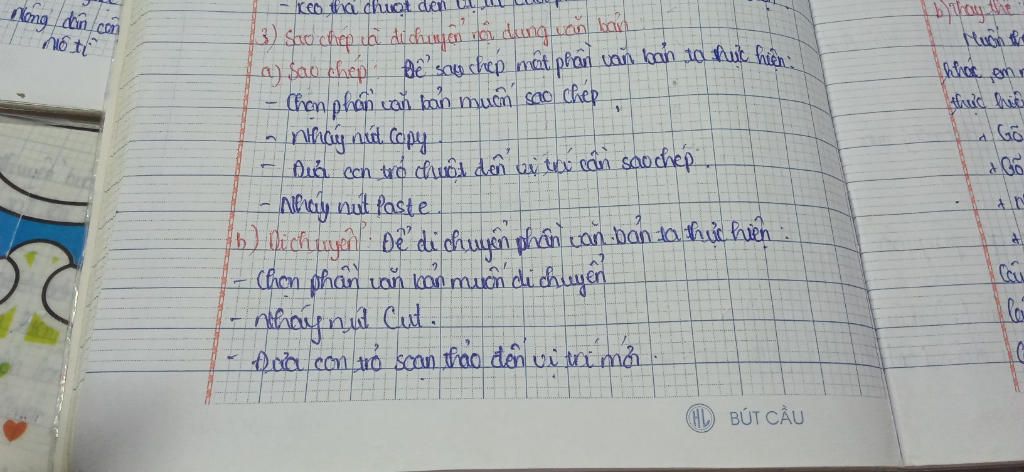 nông dân còn
- kéo thả chuột đến vị trí
3) Sao chép và di chuyển nội dung văn bản
a) Sao chép: Để sao chép một phần văn bản ta thực hiện:
- Chọn phần văn bản muốn sao chép.
- Nháy nút Copy.
- Đưa con trỏ chuột đến vị trí cần sao chép.
- Nháy nút Paste.
b) Di chuyển: Để di chuyển phần văn bản ta thực hiện:
- Chọn phần văn bản muốn di chuyển
- Nháy nút Cut.
- Đưa con trỏ soạn thảo đến vị trí mới.
HL BÚT CẦU
b) Thay thế
Muốn
khác, em
thực hiện
+ Gõ
+ Gõ
+ N
+
Câu